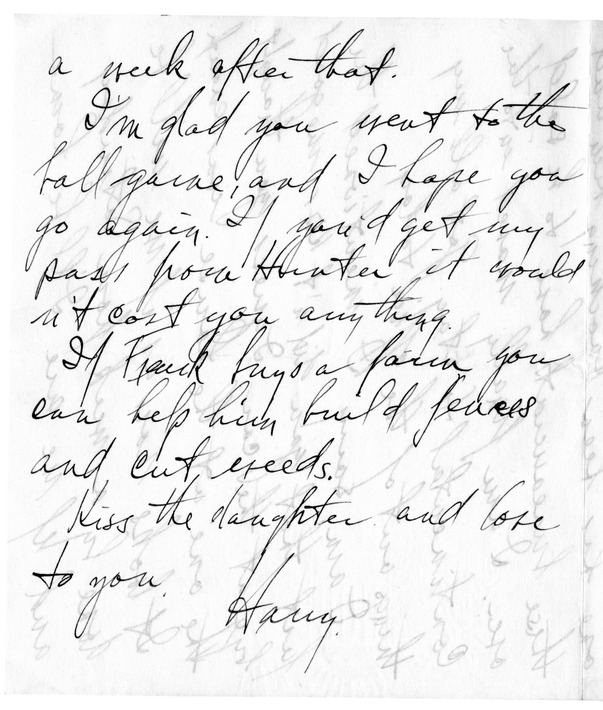 a week after that.
I'm glad you went to the
ball game, and I hope you
go again. If you'd get my
pass from Hunter it would
n't cost you anything.
If Frank buys a farm you
can help him build fences
and cut weeds.
Kiss the daughter and love
to you.
Harry.